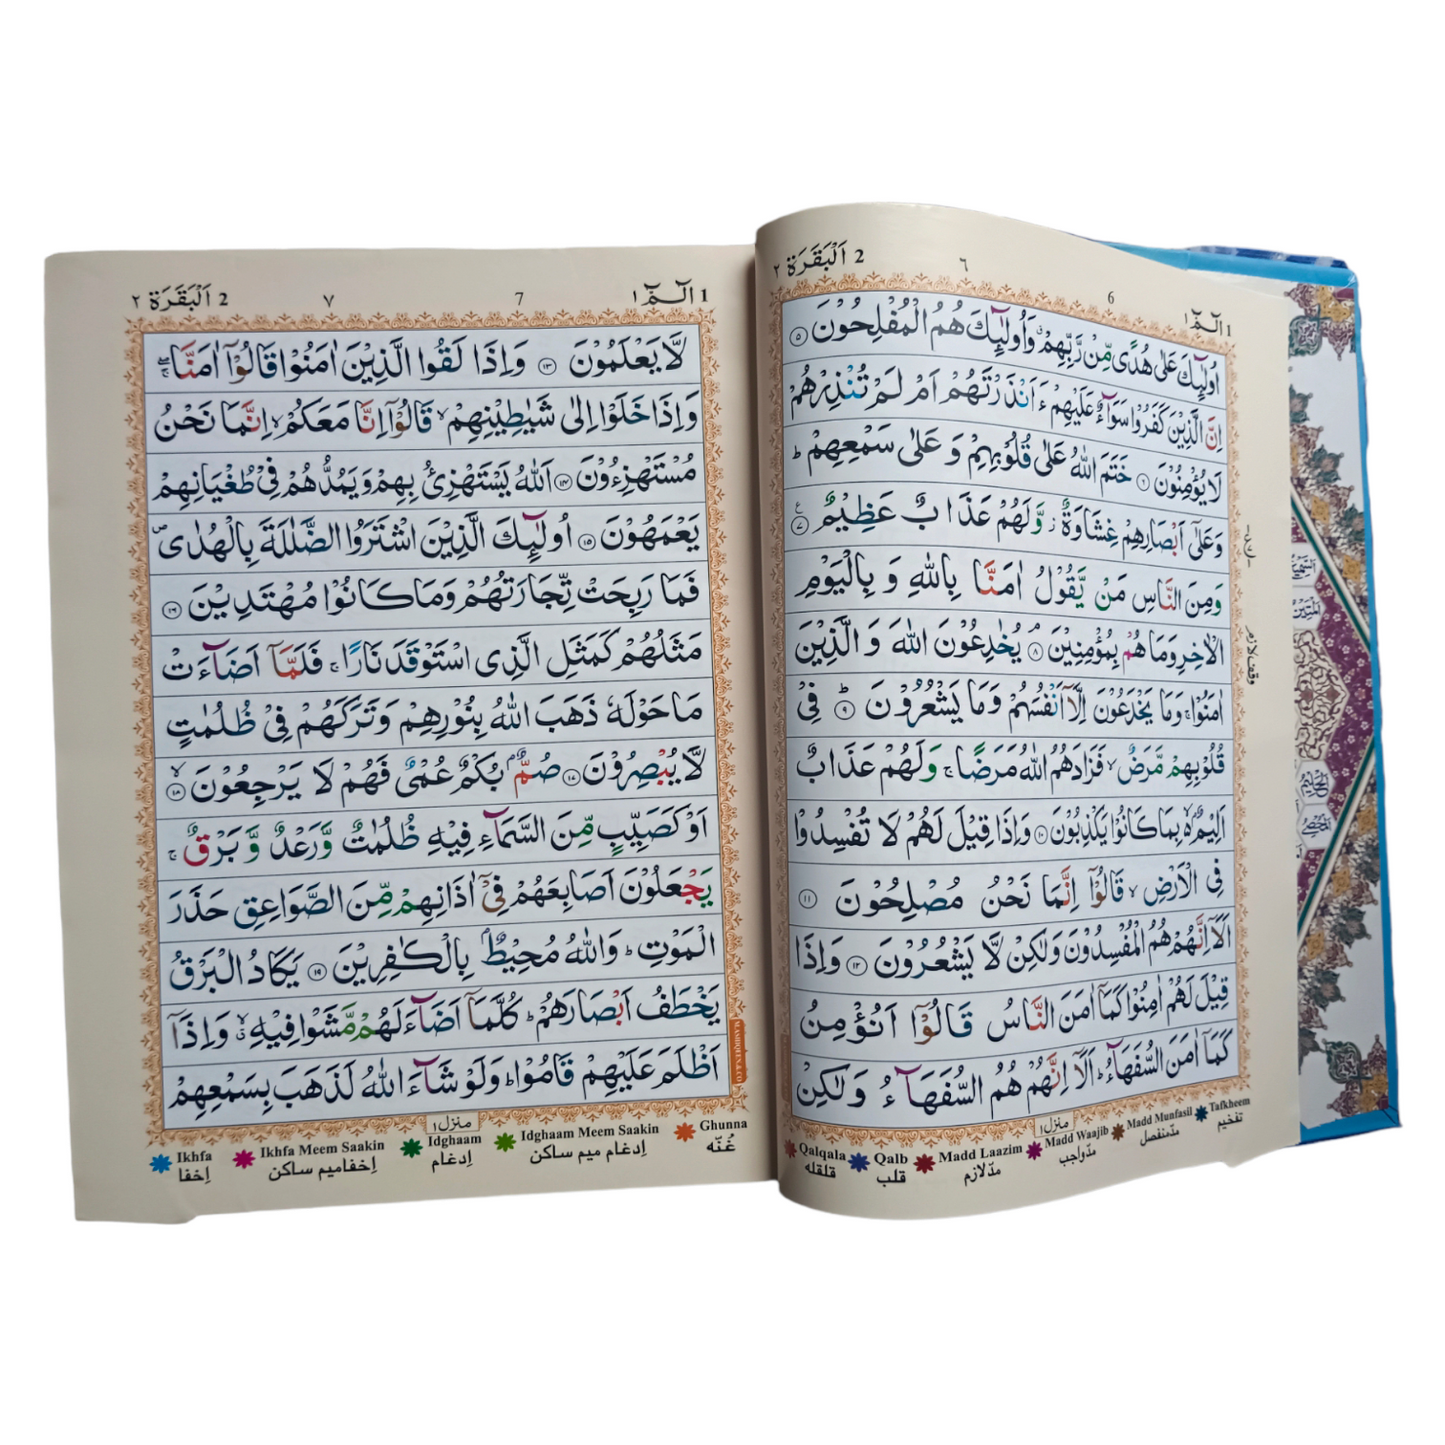 1 الٓمّٓ ١
6
٦
2 اَلْبَقَرَة ٢
اُولٰٓئِكَ عَلٰى هُدًى مِّنْ رَّبِّهِمْ ۙ وَاُولٰٓئِكَ هُمُ الْمُفْلِحُوْنَ ۝۵
اِنَّ الَّذِيْنَ كَفَرُوْا سَوَآءٌ عَلَيْهِمْ ءَاَنْذَرْتَهُمْ اَمْ لَمْ تُنْذِرْهُمْ
لَا يُؤْمِنُوْنَ ۝۶ خَتَمَ اللّٰهُ عَلٰى قُلُوْبِهِمْ وَ عَلٰى سَمْعِهِمْ ؕ
وَعَلٰٓى اَبْصَارِهِمْ غِشَاوَةٌ ز وَّلَهُمْ عَذَابٌ عَظِيْمٌ ۝۷ ع
وَمِنَ النَّاسِ مَنْ يَّقُوْلُ اٰمَنَّا بِاللّٰهِ وَ بِالْيَوْمِ
الْاٰخِرِ وَمَا هُمْ بِمُؤْمِنِيْنَ ۝۸ۘ يُخٰدِعُوْنَ اللّٰهَ وَ الَّذِيْنَ
اٰمَنُوْا ۚ وَمَا يَخْدَعُوْنَ اِلَّاۤ اَنْفُسَهُمْ وَمَا يَشْعُرُوْنَ ۝۹ؕ فِيْ
قُلُوْبِهِمْ مَّرَضٌ ۙ فَزَادَهُمُ اللّٰهُ مَرَضًا ۚ وَلَهُمْ عَذَابٌ
اَلِيْمٌۢ ۙ۬ بِمَا كَانُوْا يَكْذِبُوْنَ ۝۱۰ وَاِذَا قِيْلَ لَهُمْ لَا تُفْسِدُوْا
فِى الْاَرْضِ ۙ قَالُوْٓا اِنَّمَا نَحْنُ مُصْلِحُوْنَ ۝۱۱
اَلَاۤ اِنَّهُمْ هُمُ الْمُفْسِدُوْنَ وَلٰكِنْ لَّا يَشْعُرُوْنَ ۝۱۲ وَاِذَا
قِيْلَ لَهُمْ اٰمِنُوْا كَمَاۤ اٰمَنَ النَّاسُ قَالُوْٓا اَنُؤْمِنُ
كَمَاۤ اٰمَنَ السُّفَهَآءُ ؕ اَلَاۤ اِنَّهُمْ هُمُ السُّفَهَآءُ وَلٰكِنْ
وقف لازم
منزل ۱
Qalqala Qalb Madd Laazim Madd Waajib Madd Munfasil Tafkheem
قلقله قلب مدّ لازم مدّ واجب مدّ منفصل تفخیم
1 الٓمّٓ ١
7
٧
2 اَلْبَقَرَة ٢
لَّا يَعْلَمُوْنَ ۝۱۳ وَاِذَا لَقُوا الَّذِيْنَ اٰمَنُوْا قَالُوْٓا اٰمَنَّا ۚۖ
وَاِذَا خَلَوْا اِلٰى شَيٰطِيْنِهِمْ ۙ قَالُوْٓا اِنَّا مَعَكُمْ ۙ اِنَّمَا نَحْنُ
مُسْتَهْزِءُوْنَ ۝۱۴ اَللّٰهُ يَسْتَهْزِئُ بِهِمْ وَيَمُدُّهُمْ فِيْ طُغْيَانِهِمْ
يَعْمَهُوْنَ ۝۱۵ اُولٰٓئِكَ الَّذِيْنَ اشْتَرَوُا الضَّلٰلَةَ بِالْهُدٰى ۪
فَمَا رَبِحَتْ تِّجَارَتُهُمْ وَمَا كَانُوْا مُهْتَدِيْنَ ۝۱۶
مَثَلُهُمْ كَمَثَلِ الَّذِى اسْتَوْقَدَ نَارًا ۚ فَلَمَّاۤ اَضَآءَتْ
مَا حَوْلَهٗ ذَهَبَ اللّٰهُ بِنُوْرِهِمْ وَتَرَكَهُمْ فِيْ ظُلُمٰتٍ
لَّا يُبْصِرُوْنَ ۝۱۷ صُمٌّۢ بُكْمٌ عُمْيٌ فَهُمْ لَا يَرْجِعُوْنَ ۝۱۸ۙ
اَوْ كَصَيِّبٍ مِّنَ السَّمَآءِ فِيْهِ ظُلُمٰتٌ وَّرَعْدٌ وَّ بَرْقٌ ۚ
يَجْعَلُوْنَ اَصَابِعَهُمْ فِيْٓ اٰذَانِهِمْ مِّنَ الصَّوَاعِقِ حَذَرَ
الْمَوْتِ ؕ وَاللّٰهُ مُحِيْطٌۢ بِالْكٰفِرِيْنَ ۝۱۹ يَكَادُ الْبَرْقُ
يَخْطَفُ اَبْصَارَهُمْ ؕ كُلَّمَاۤ اَضَآءَ لَهُمْ مَّشَوْا فِيْهِ ۙۗ وَاِذَاۤ
اَظْلَمَ عَلَيْهِمْ قَامُوْا ؕ وَلَوْ شَآءَ اللّٰهُ لَذَهَبَ بِسَمْعِهِمْ
منزل ۱
Ikhfa Ikhfa Meem Saakin Idghaam Idghaam Meem Saakin Ghunna
اِخفا اِخفامیم ساکن اِدغام اِدغام میم ساکن غُنّه